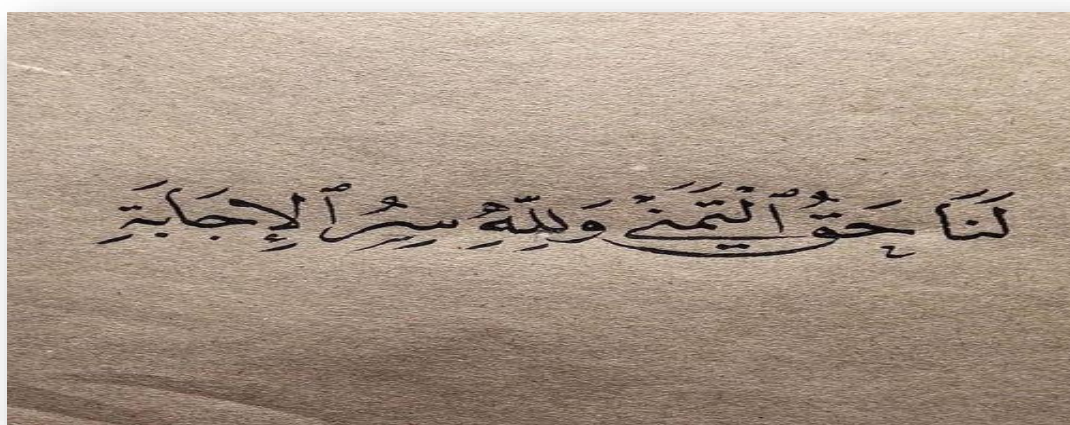 لَنَا حَقُّ ٱلْتَّمَنِّي وَلِلَّهِ سِرُّ ٱلإِجَابَةِ